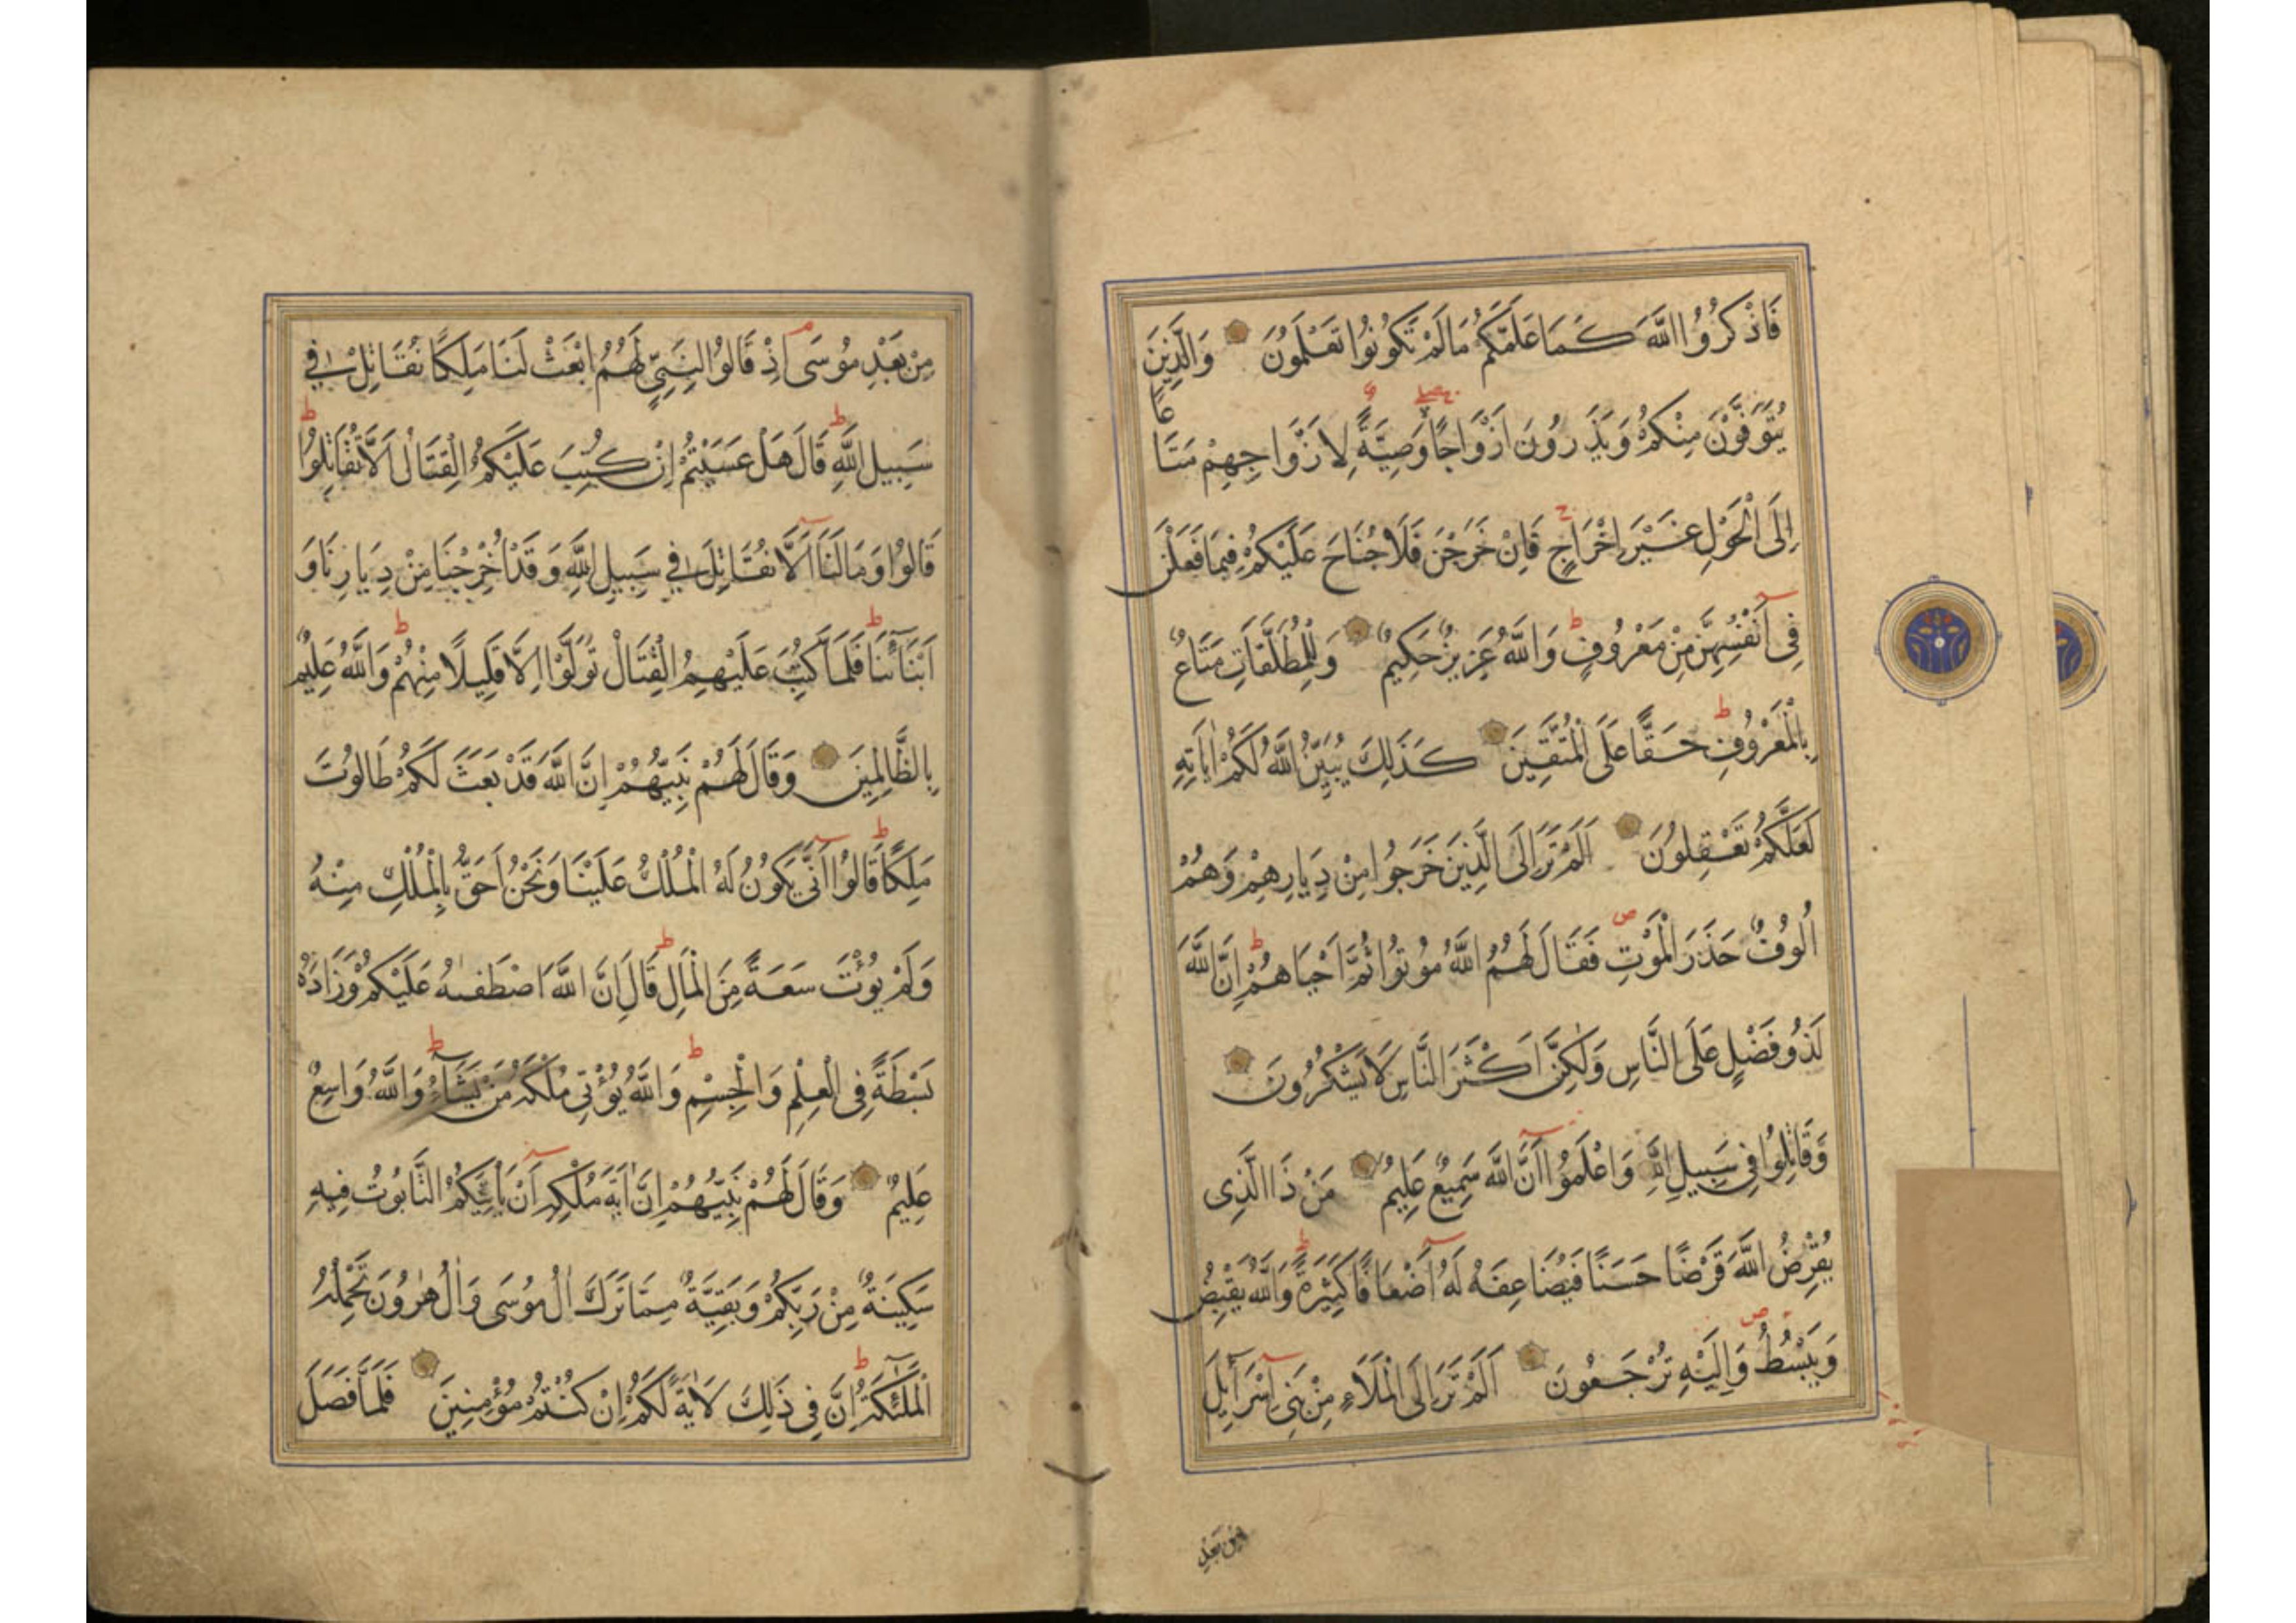 فَاذْكُرُوا اللَّهَ كَمَا عَلَّمَكُمْ مَا لَمْ تَكُونُوا تَعْلَمُونَ وَالَّذِينَ
يُتَوَفَّوْنَ مِنْكُمْ وَيَذَرُونَ اَزْوَاجًا وَصِيَّةً لِاَزْوَاجِهِمْ مَتَاعًا
اِلَى الْحَوْلِ غَيْرَ اِخْرَاجٍ فَاِنْ خَرَجْنَ فَلَا جُنَاحَ عَلَيْكُمْ فِيمَا فَعَلْنَ
فِى اَنْفُسِهِنَّ مِنْ مَعْرُوفٍ وَاللَّهُ عَزِيزٌ حَكِيمٌ وَلِلْمُطَلَّقَاتِ مَتَاعٌ
بِالْمَعْرُوفِ حَقًّا عَلَى الْمُتَّقِينَ كَذَلِكَ يُبَيِّنُ اللَّهُ لَكُمْ اٰيَاتِهِ
لَعَلَّكُمْ تَعْقِلُونَ اَلَمْ تَرَ اِلَى الَّذِينَ خَرَجُوا مِنْ دِيَارِهِمْ وَهُمْ
اُلُوفٌ حَذَرَ الْمَوْتِ فَقَالَ لَهُمُ اللَّهُ مُوتُوا ثُمَّ اَحْيَاهُمْ اِنَّ اللَّهَ
لَذُو فَضْلٍ عَلَى النَّاسِ وَلٰكِنَّ اَكْثَرَ النَّاسِ لَا يَشْكُرُونَ
وَقَاتِلُوا فِى سَبِيلِ اللَّهِ وَاعْلَمُوا اَنَّ اللَّهَ سَمِيعٌ عَلِيمٌ مَنْ ذَا الَّذِى
يُقْرِضُ اللَّهَ قَرْضًا حَسَنًا فَيُضَاعِفَهُ لَهُ اَضْعَافًا كَثِيرَةً وَاللَّهُ يَقْبِضُ
وَيَبْسُطُ وَاِلَيْهِ تُرْجَعُونَ اَلَمْ تَرَ اِلَى الْمَلَاءِ مِنْ بَنِى اِسْرَآئِلَ
مِنْ بَعْدِ
مِنْ بَعْدِ مُوسَى اِذْ قَالُوا لِنَبِىٍّ لَهُمُ ابْعَثْ لَنَا مَلِكًا نُقَاتِلْ فِى
سَبِيلِ اللَّهِ قَالَ هَلْ عَسَيْتُمْ اِنْ كُتِبَ عَلَيْكُمُ الْقِتَالُ اَلَّا تُقَاتِلُوا
قَالُوا وَمَا لَنَا اَلَّا نُقَاتِلَ فِى سَبِيلِ اللَّهِ وَقَدْ اُخْرِجْنَا مِنْ دِيَارِنَا وَ
اَبْنَآئِنَا فَلَمَّا كُتِبَ عَلَيْهِمُ الْقِتَالُ تَوَلَّوْا اِلَّا قَلِيلًا مِنْهُمْ وَاللَّهُ عَلِيمٌ
بِالظَّالِمِينَ وَقَالَ لَهُمْ نَبِيُّهُمْ اِنَّ اللَّهَ قَدْ بَعَثَ لَكُمْ طَالُوتَ
مَلِكًا قَالُوا اَنَّى يَكُونُ لَهُ الْمُلْكُ عَلَيْنَا وَنَحْنُ اَحَقُّ بِالْمُلْكِ مِنْهُ
وَلَمْ يُؤْتَ سَعَةً مِنَ الْمَالِ قَالَ اِنَّ اللَّهَ اصْطَفٰيهُ عَلَيْكُمْ وَزَادَهُ
بَسْطَةً فِى الْعِلْمِ وَالْجِسْمِ وَاللَّهُ يُؤْتِى مُلْكَهُ مَنْ يَشَآءُ وَاللَّهُ وَاسِعٌ
عَلِيمٌ وَقَالَ لَهُمْ نَبِيُّهُمْ اِنَّ اٰيَةَ مُلْكِهِ اَنْ يَأْتِيَكُمُ التَّابُوتُ فِيهِ
سَكِينَةٌ مِنْ رَبِّكُمْ وَبَقِيَّةٌ مِمَّا تَرَكَ اٰلُ مُوسَى وَاٰلُ هٰرُونَ تَحْمِلُهُ
الْمَلٰٓئِكَةُ اِنَّ فِى ذَلِكَ لَاٰيَةً لَكُمْ اِنْ كُنْتُمْ مُؤْمِنِينَ فَلَمَّا فَصَلَ